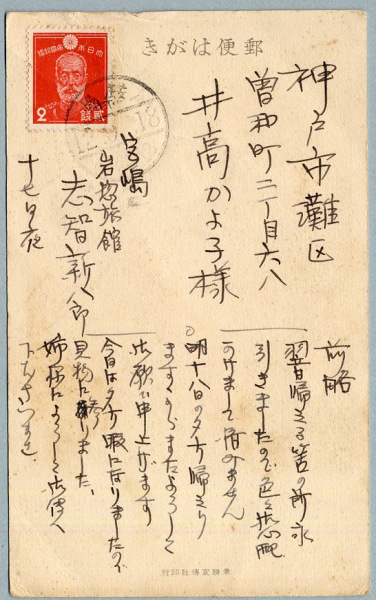 郵便はがき
大日本帝国郵便
2
貳錢
18
神戸市灘区
曽和町二丁目六八
井高かよ子様
宮嶋
岩惣旅館
志智新八郎
十七日夜
前略
翌日帰える筈の所永
引きましたので色々御心配
かけまして済みません
明十八日の夕方帰えり
ますからまたよろしく
お願い申上げます
今日は夕方暇になりましたので
見物に参りました、
姉様によろしくお伝へ
下さいませ。